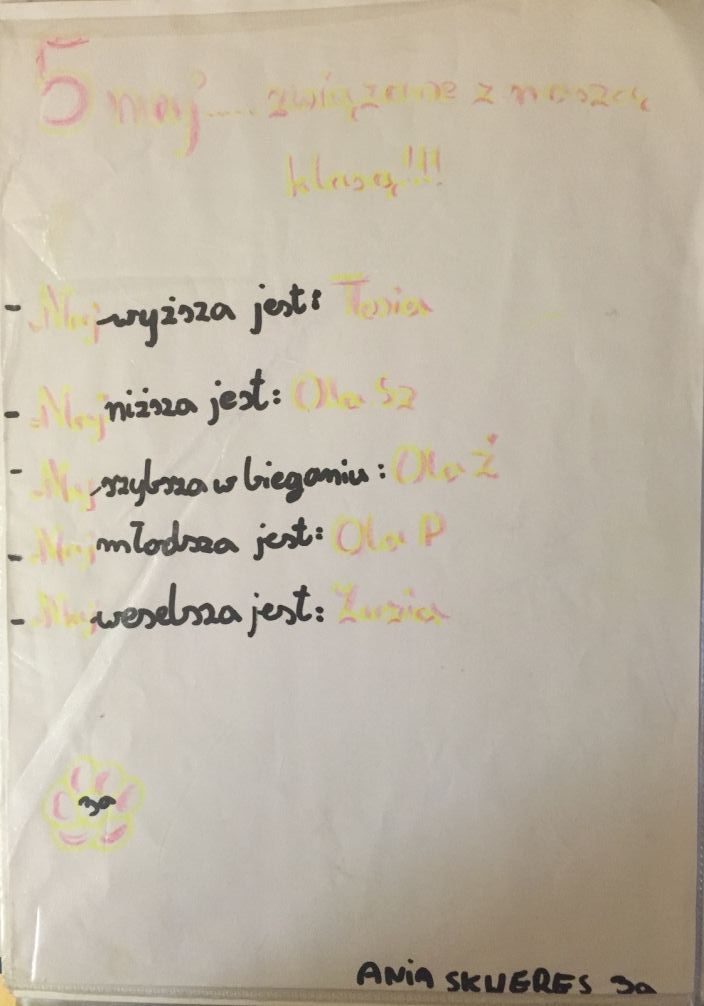 5 naj..... związane z naszą
klasą!!!
- Najwyższa jest: Tosia
- Najniższa jest: Ola Sz
- Najszybsza w bieganiu: Ola Ż
- Najmłodsza jest: Ola P
- Najweselsza jest: Zuzia
3a
ANIA SKWERES 3a